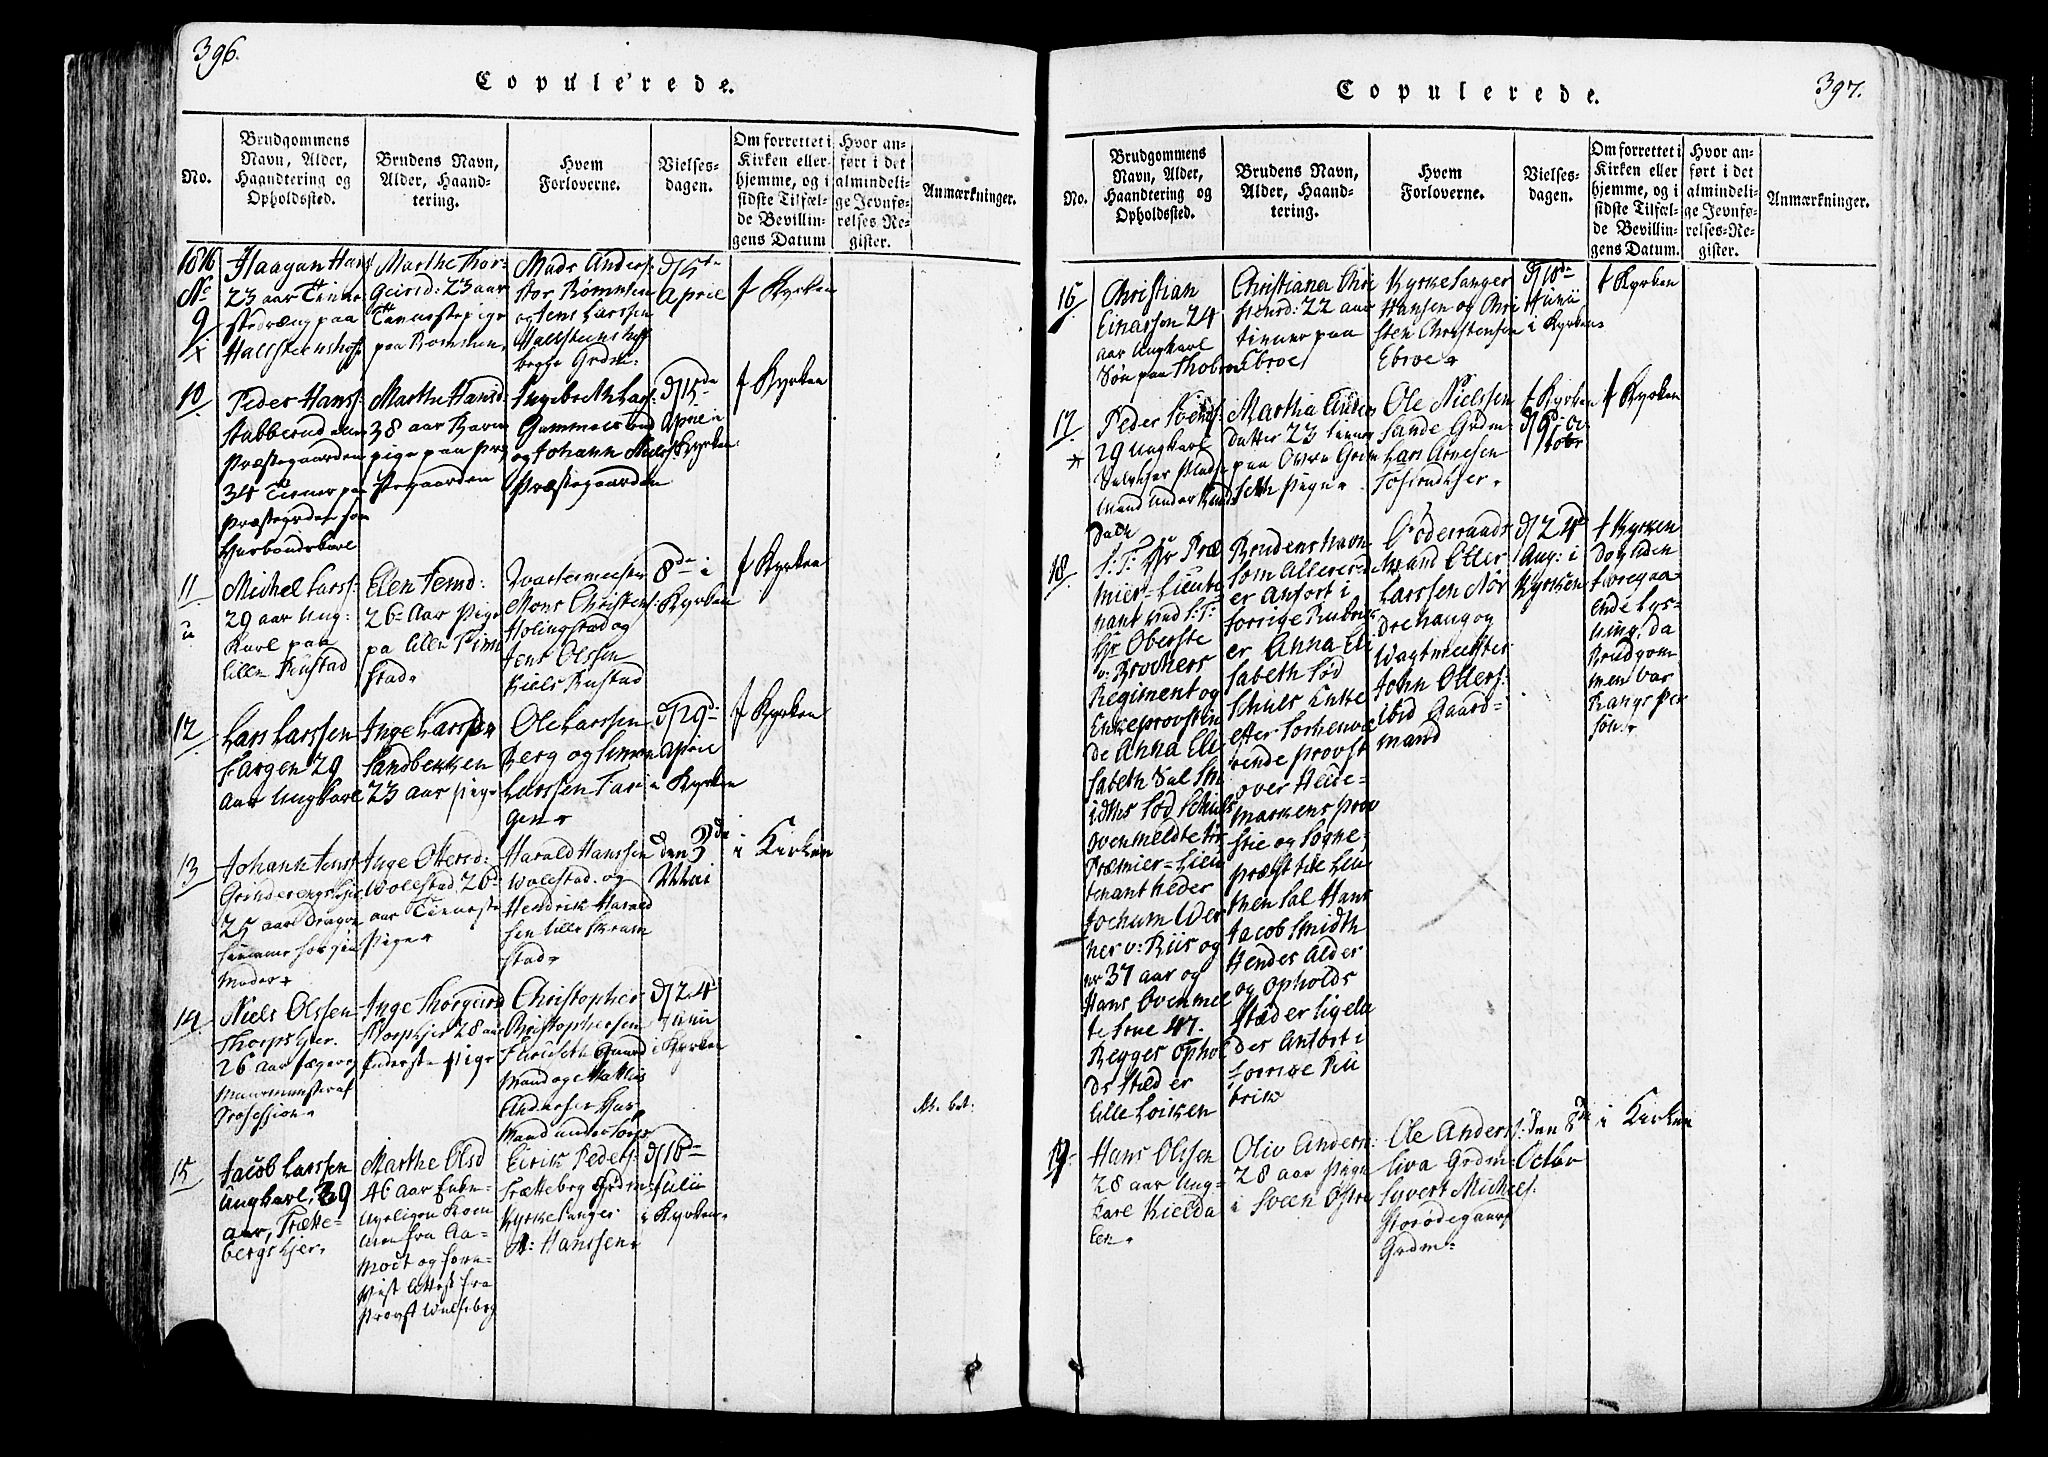 396.
Copulerede.
No.
Brudgommens
Navn, Alder,
Haandtering og
Opholdssted.
Brudens Navn,
Alder, Haand-
tering.
Hvem
Forloverne.
Vielses-
dagen.
Om forrettet i
Kirken eller
hjemme, og i
sidste Tilfæl-
de Bevillin-
gens Datum
Hvor an-
ført i det
almindeli-
ge Jevnfø-
relses-Re-
gister.
Anmærkninger.
1816
No
9
x
Haagan Hans
23 aar Tienne
stedræng paa
Hallsteenshoff
Marthe Thor-
Geirsd: 23 aar
Tienestepige
paa Rommen
Mads Anders:
Stor Rommen
og Jens Larssen
Hallsteenshoff
begge Grdm:
d/15de
April
f Kyrken
10
Peder Hanss:
Stabberud
Præstegaarden
34 Tiener paa
Præstegrden som
Husbondskarl
Marthe Hansd
38 aar
pige paa Præ
stegaarden
Ingebreth Lars:
Gammelsrud
og Johann Niels:
Præstegaarden
d/15de
April i
Kyrken
f Kyrken
11
u
Michel Larss:
29 aar Ung-
karl paa
Lille Rustad
Elen Jensd:
26 Aar Pige
pa Lille Finn
stad
Qvartermester
Mons Christens:
Holingstad og
Jens Olssen
Niels Rustad
8de i
Kyrken
f Kyrken
12
Lars Larssen
Fargen 29
aar Ungkarl
Inge Larssen
Sandbekken
23 aar pige
Ole Larssen
Berg og Simen
Larssen Far
gen
d/29de
April
i Kyrken
f Kyrken
13
Johann Jenss
Grinderengskjer
25 aar Dragon
hiemme hos sin
Moder
Inge Ottersd:
Wolestad 26d
aar Tieneste
Pige
Harald Hanssen
Wolestad og
Hendrik Harald
sen Lille Skram
stad
den 3de
Mai
i Kirken
14
Niels Olssen
Thorpskjer
26 aar Jæger og
Muurmester af
Profession
Inge Thorgiersd
Thorpskjer 28 aar
Inderste Pige
Christopher
Christophersen
Furuseth Gaard
Mand og Mathis
Andersen Huus
Mand under Torp
d/24de
Junii
i Kyrken
15
Jacob Larssen
Ungkarl, 39
aar, Frætte-
bergskjer
Marthe Olsd
46 aar Enke-
fra Aa-
modt og
vist Attest fra
Provst Wulfsberg
Eirik Peders:
Frætteberg Grdm:
Kyrkesanger
Hanssen
d/16de
Julii
i Kyrken
At. bet:
397.
Copulerede.
No.
Brudgommens
Navn, Alder,
Haandtering og
Opholdssted.
Brudens Navn,
Alder, Haand-
tering.
Hvem
Forloverne.
Vielses-
dagen.
Om forrettet i
Kirken eller
hjemme, og i
sidste Tilfæl-
de Bevillin-
gens Datum.
Hvor an-
ført i det
almindeli-
ge Jevnfø-
relses-Re-
gister.
Anmærkninger.
16
Christian
Einarssøn 24
aar Ungkarl
Søn paa Thobroe
Christiana Chri
stensd: 22 aar
tiener paa
Ebroe
Kyrkesanger
Hansen og Chri
sten Christensen
Ebroe
d/18de
Junii
i Kyrken
f Kyrken
17
x
Peder
29 Ungkarl
Mand under
Dahl
Martha Anders
datter 23 tiener
paa Øvre Grim
seth Pige
Ole Nielssen
Sande Grdm
Lars Arnesen
f Kyrken
d/9de Oc
tobr
f Kyrken
18
S: T: Hr Præ
mier-Lieute
nant ved S: T:
Hr Oberste
v: Brochers
Regiment og
Enkeprovstin
de Anna Eli
sabeth Sal Sm
idths Fød Schuls
Ovenmeldte Hr
Premier-Lieu
tenant heder
Jochum Wer
ner v: Riis og
er 37 aar og
Hans Ovenmel
te Frue 47.
Begges ophol
ds Stæd er
Lille Loiken
Brudens Navn
som allerer-
er anført i
forrige Rubrik
er Anna Eli
sabeth Fød
Schuls Enke
efter Forhenvæ
rende Provst
over Hede-
markens Prov
stie og Sogne-
præst til Leu
then Sal Hans
Jacob Smidth
Hendes Alder
og Opholds
stæd er ligele
des Anført i
Forrige Ru
brik
Goderaads
Mand Otter
Larssen Nor
drehaug og
Wagtmester
John Otters:
Gaard-
mand
d/24d
Aug: i
Kyrken
f Kyrken
Dog uden
foregaa
ende Lys-
ning, da
Brudgom
men var
Rangs Per
son
19
Hans Olssen
28 aar Ung-
karl Kielda
len
Oliv Anders:
28 aar Pige
i Sveen Østre
Ole Anders:
Liva Grdm-
Syvert Michels:
Storødegaard
Grdm-
den 8de
Octobr
i Kirken